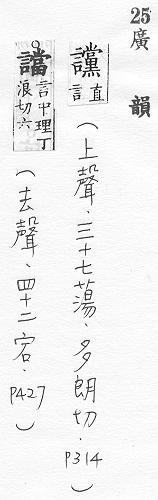 25廣韻
讜直言(上聲、三十七蕩、多朗切、P314)
○譡言中理丁浪切六(去聲、四十二宕、P427)